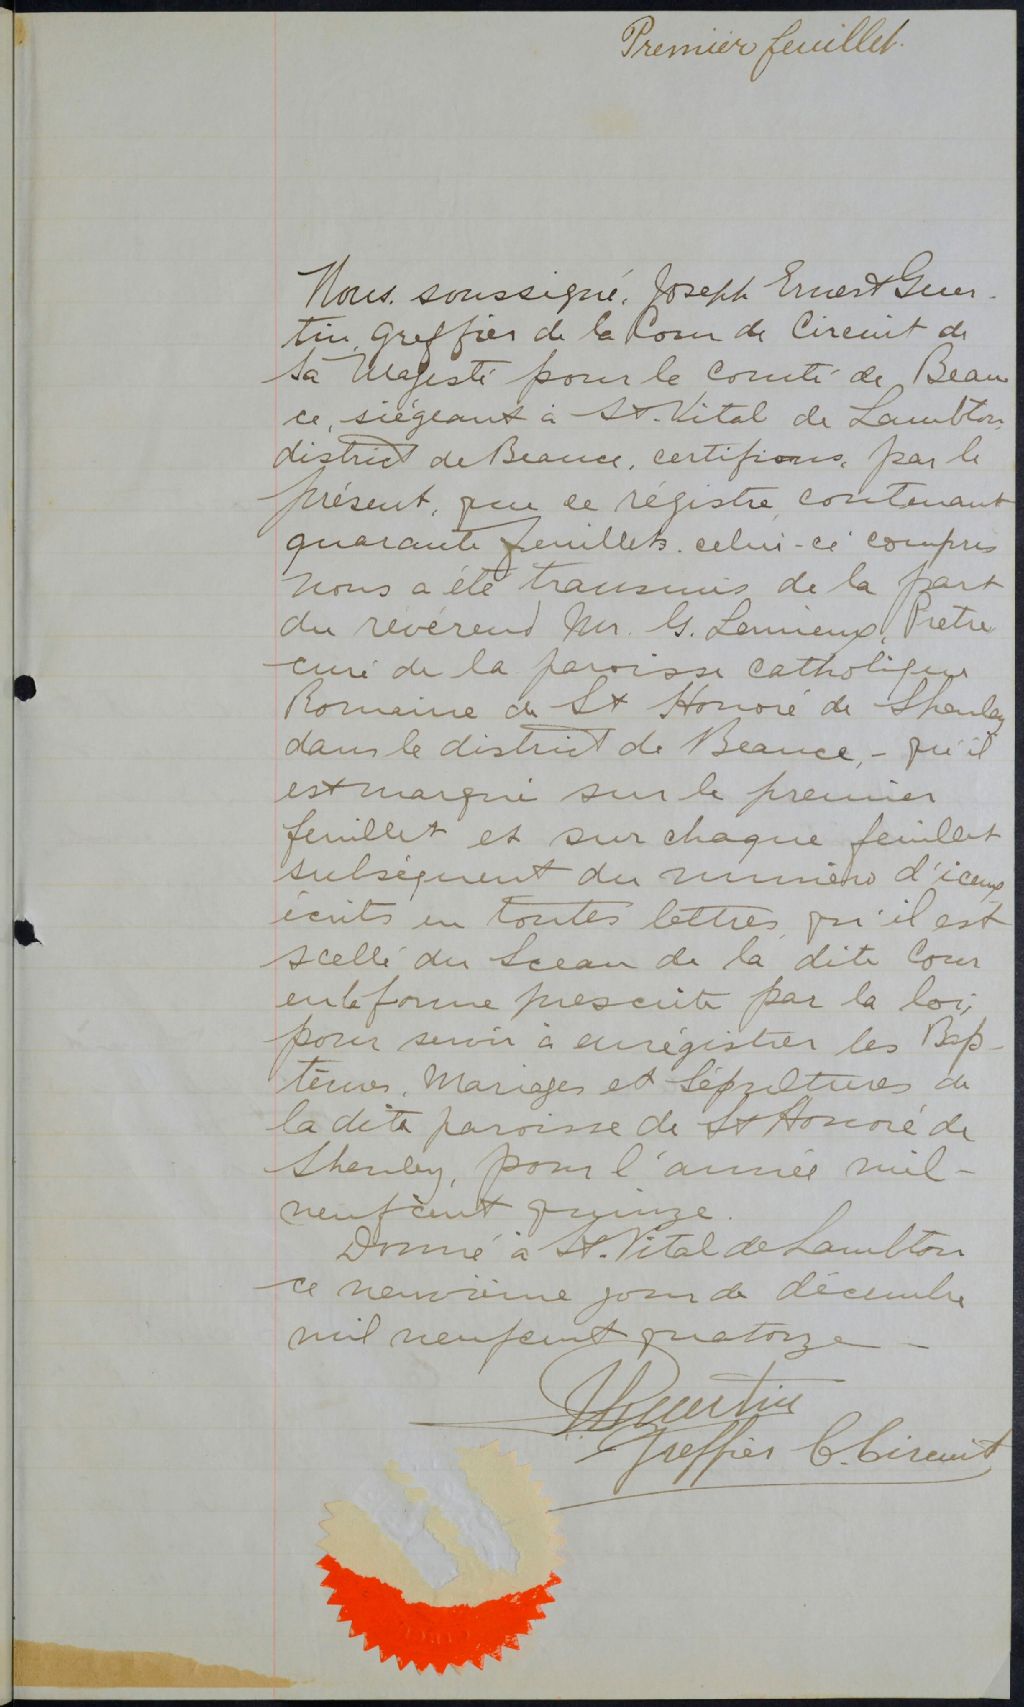 Premier feuillet.
Nous. soussigné, Joseph Ernest Guer-
tin, greffier de la Cour de Circuit de
Sa Majesté pour le comté de Beau
ce, siégeant à St. Vital de Lambton,
district de Beauce, certifions, par le
présent, que ce régistre, contenant
quarante feuillets. celui-ci compris
nous a été transmis de la part
du révérend Mr. G. Lemieux, Pretre
curé de la paroisse catholique
Romaine de St Honoré de Shenley
dans le district de Beauce, - qu'il
est marqué sur le premier
feuillet et sur chaque feuillet
subséquent du numéro d'iceux,
écrits en toutes lettres, qu'il est
scellé du Sceau de la dite Cour
en la forme prescrite par la loi,
pour servir à enrégistrer les Bap-
têmes, Mariages et Sépultures de
la dite paroisse de St Honoré de
Shenley, pour l'année mil-
neuf cent quinze.
Donné à St. Vital de Lambton
ce neuvième jour de décembre
mil neuf cent quatorze -
Guertin
Greffier C. Circuit